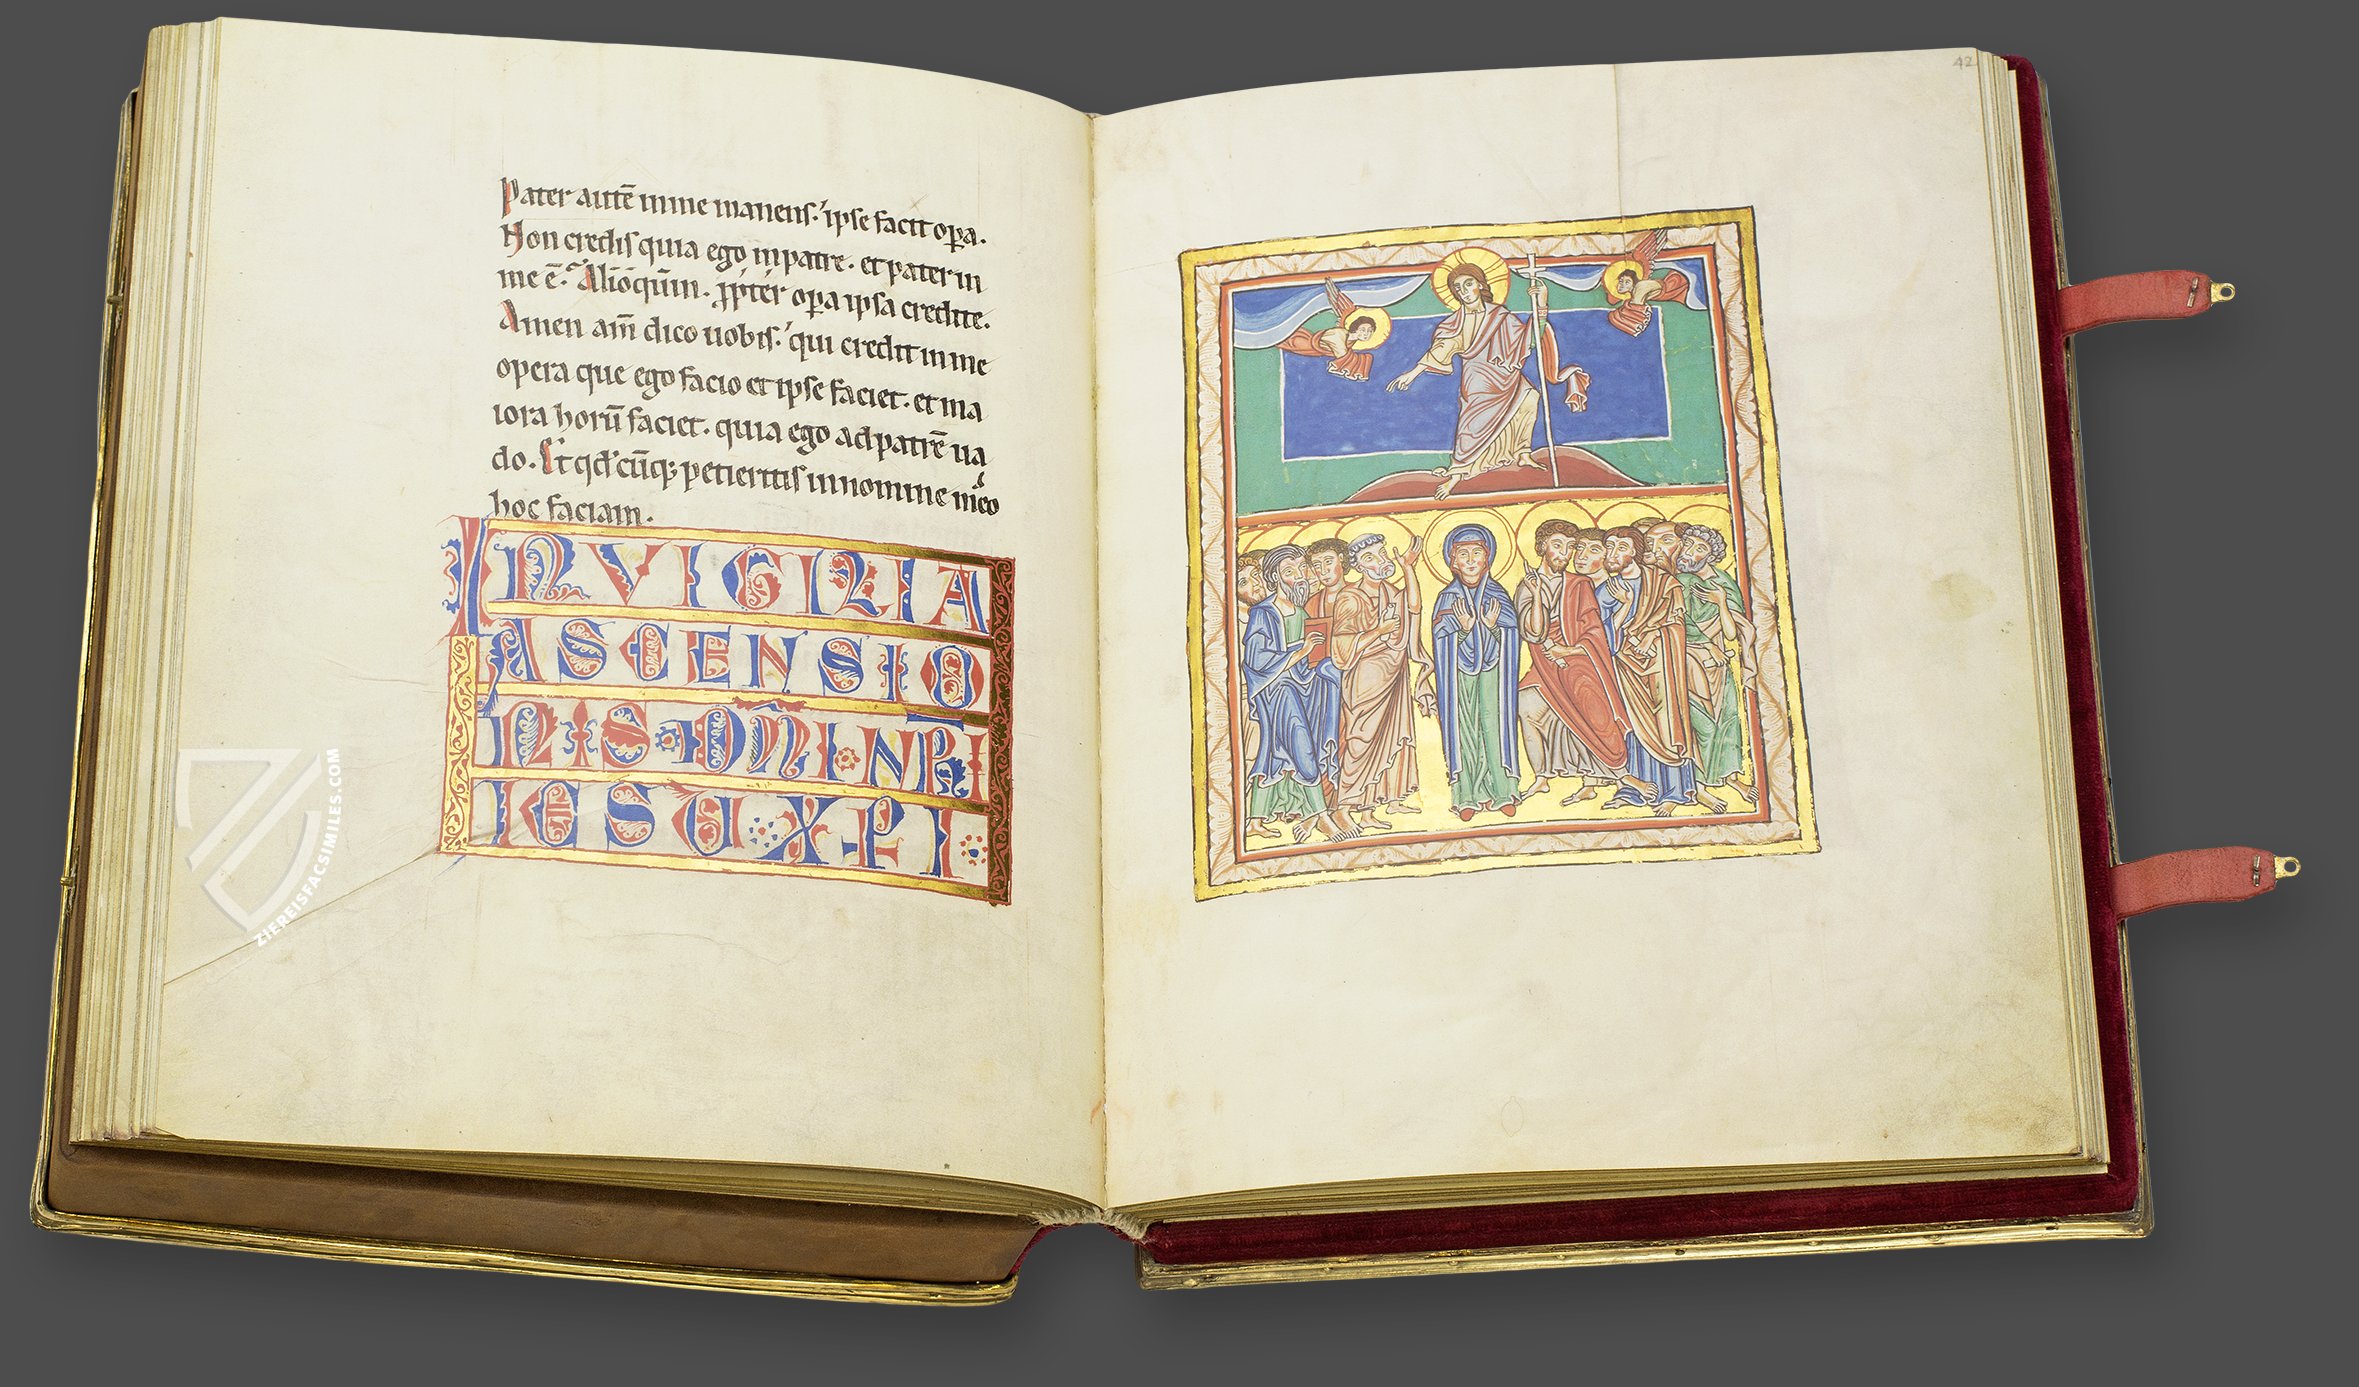 Pater autē in me manens. ipse facit oꝑa.
Non credis quia ego in patre. et pater in
me ē. Alioq̄uin. ꝓpter oꝑa ipsa credite.
Amen am̄ dico uobis. qui credit in me
opera que ego facio et ipse faciet. et ma
iora horū faciet. quia ego ad patrē ua
do. Et qd̓cūq; petieritis in nomine meo
hoc faciam.
IN VIGILIA
ASCENSIO
NIS DÑI NRI
IESU XPI
42
ZIEREISFACSIMILES.COM